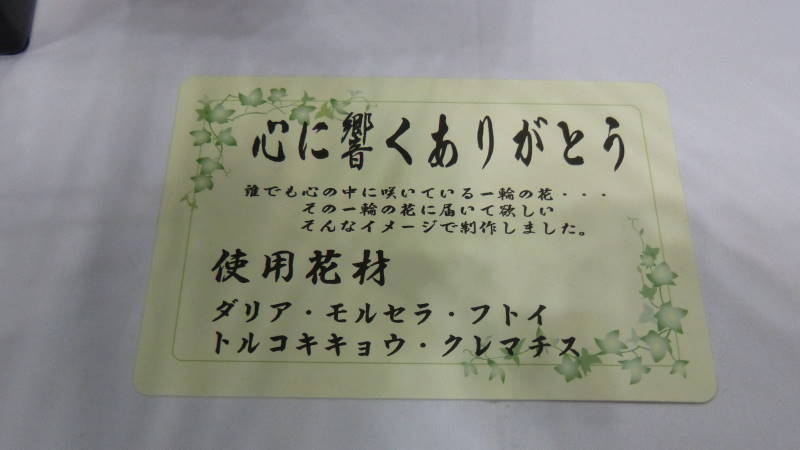 心に響くありがとう
誰でも心の中に咲いている一輪の花・・・
その一輪の花に届いて欲しい
そんなイメージで制作しました。
使用花材
ダリア・モルセラ・フトイ
トルコキキョウ・クレマチス